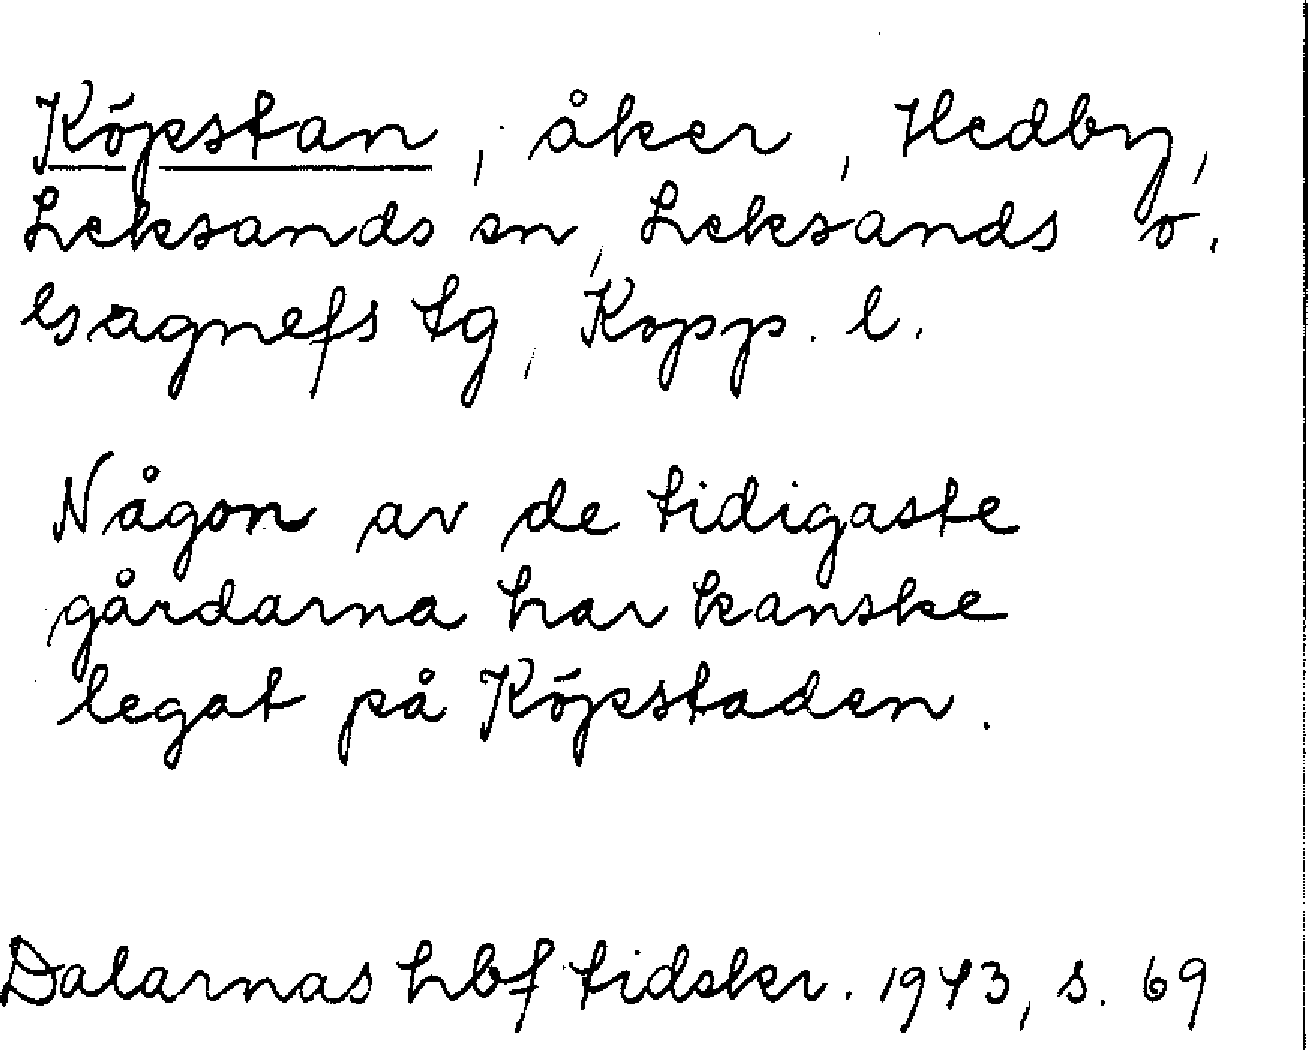 Köpstan, åker, Hedby,
Leksands sn, Leksands o.
Gagnefs tg, Kopp. l.
Någon av de tidigaste
gårdarna har kanske
legat på Köpstaden.
Dalarnas hbf tidskr. 1943, s. 69